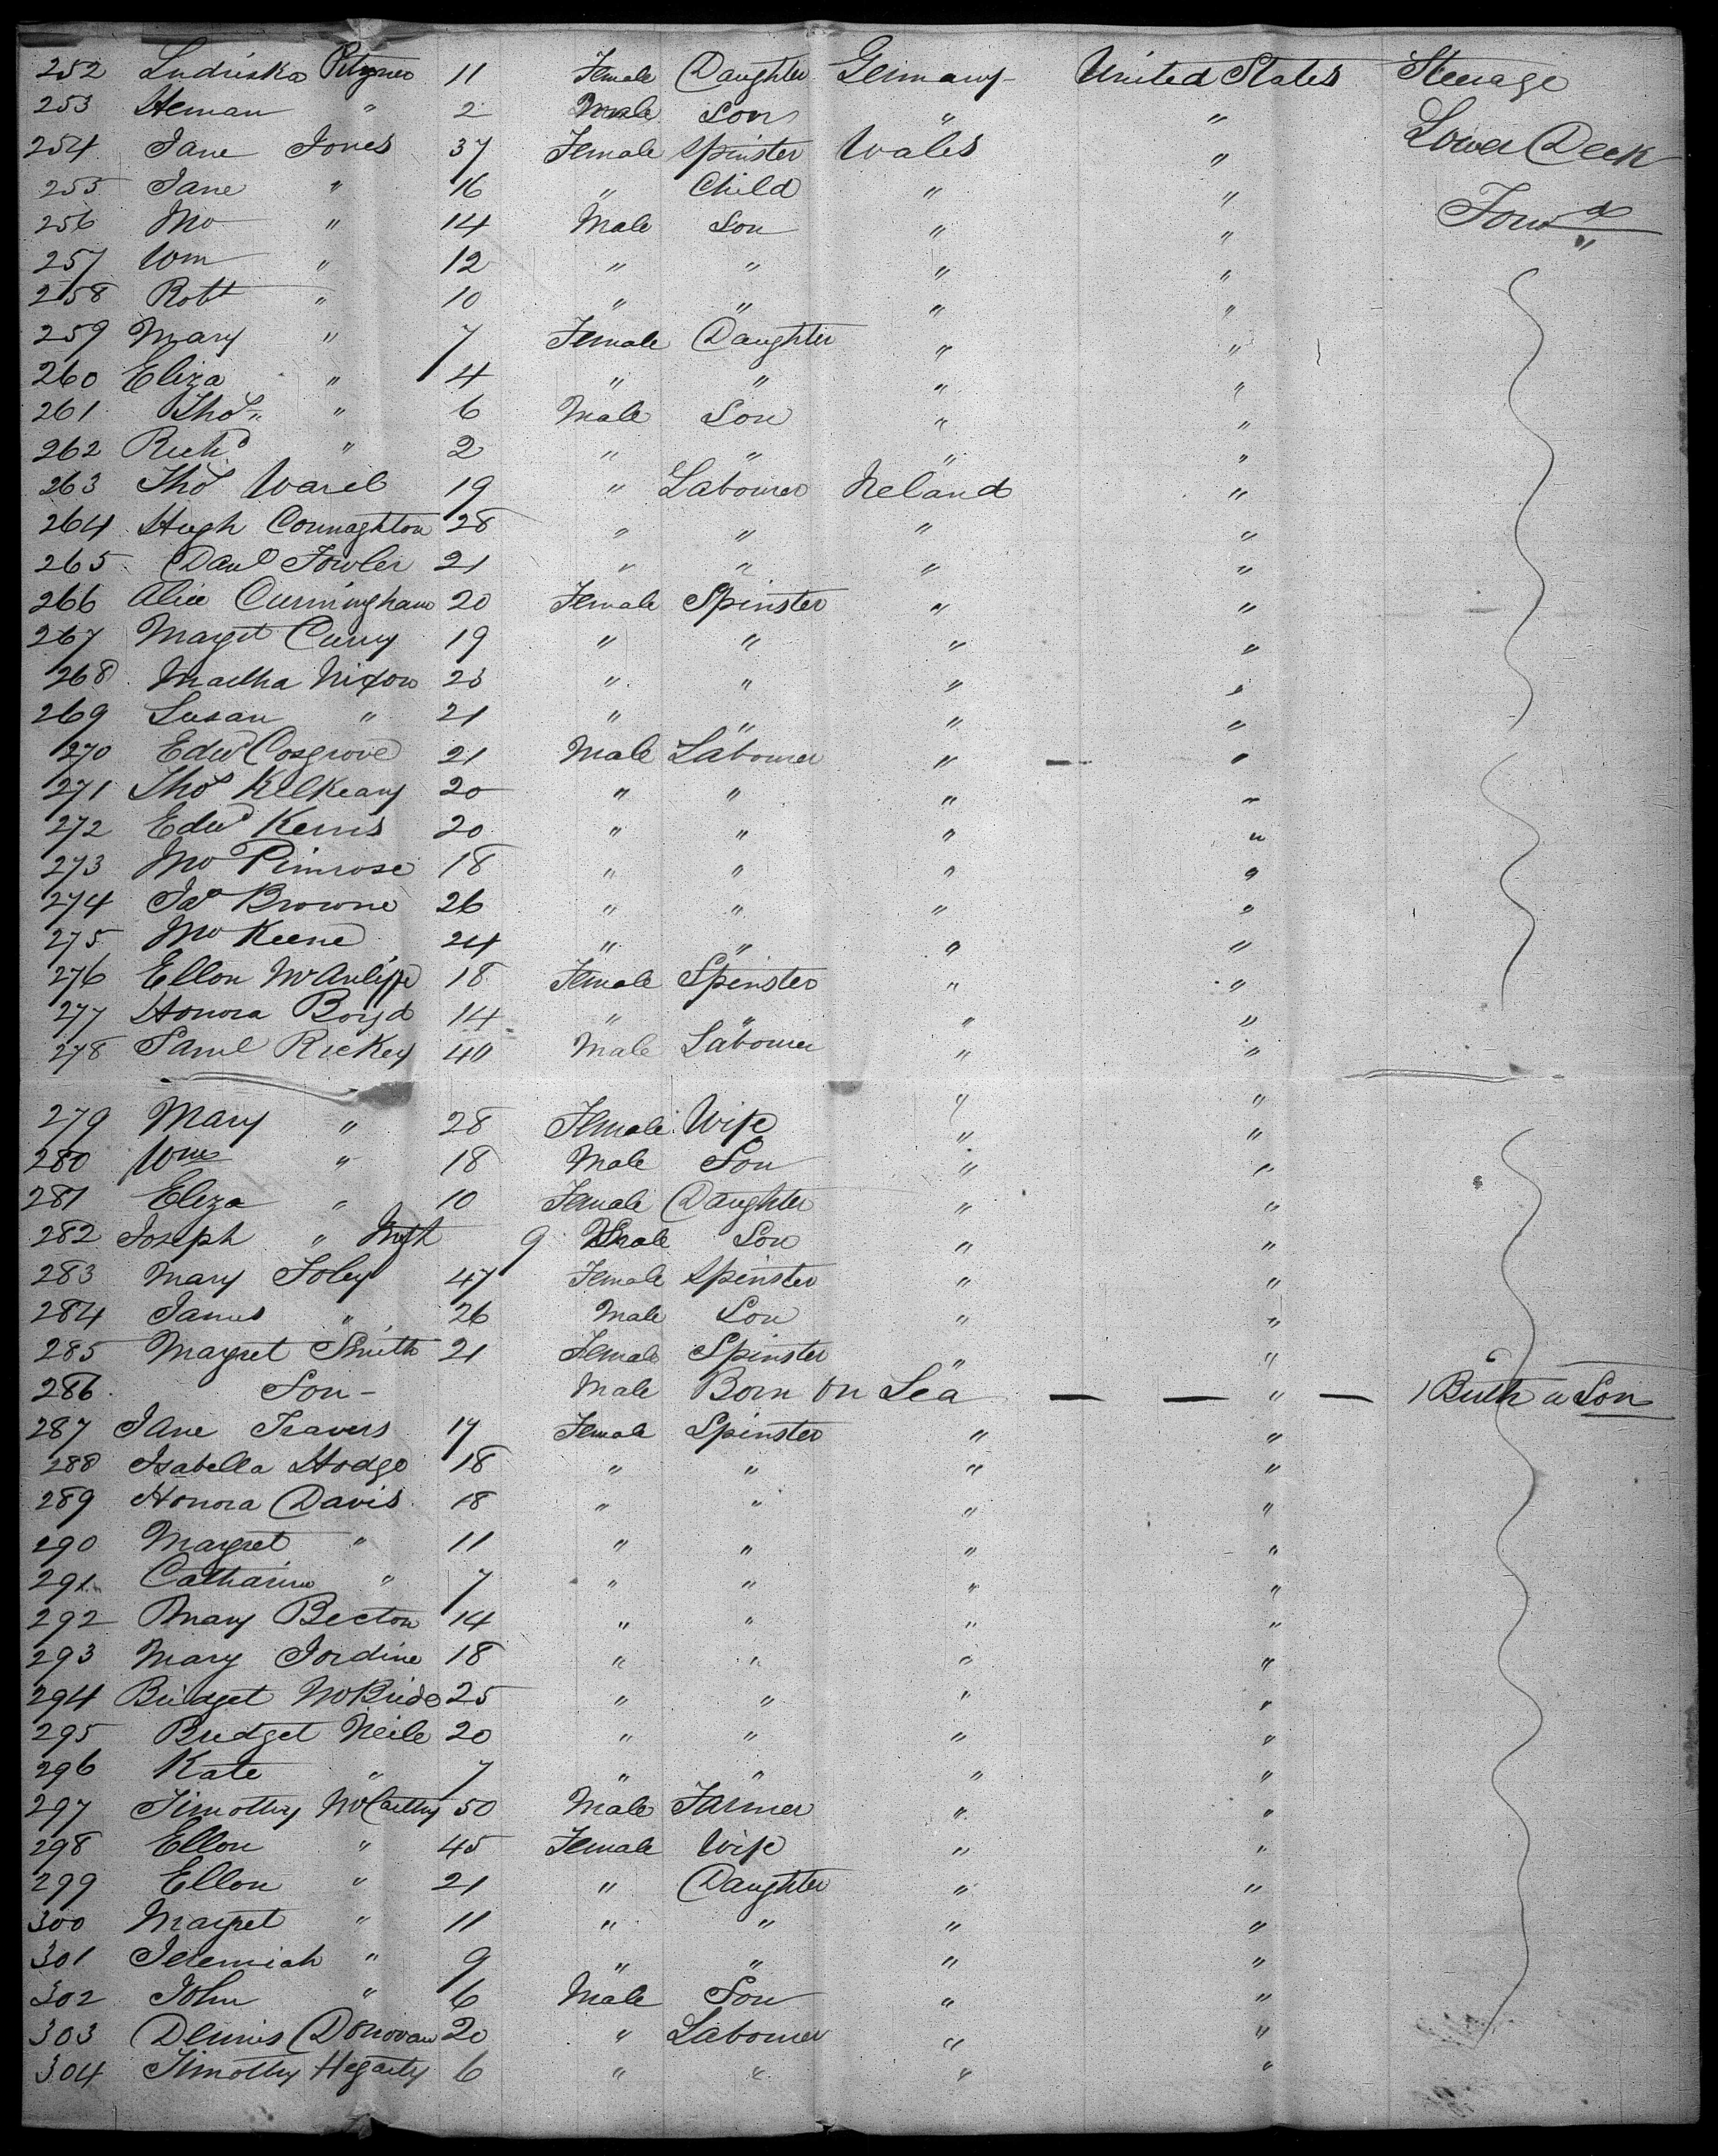 252 Ludriska 11 Female Daughter Germany United States Steerage
253 Heman " 2 Male Son " "
254 Jane Jones 37 Female Spinster Wales " Lower Deck
255 Jane " 16 " Child " "
256 Jno " 14 Male Son " " Forwd
257 Wm " 12 " " " " "
258 Robt " 10 " " " "
259 Mary " 7 Female Daughter " "
260 Eliza " 4 " " " "
261 Thos " 6 Male Son " "
262 Richd " 2 " " " "
263 Thos 19 " Labourer Ireland "
264 Hugh Connaghton 28 " " " "
265 Danl Fowler 21 " " " "
266 Alice Cunningham 20 Female Spinster " "
267 Margt Curry 19 " " " "
268 Martha Nixon 23 " " " "
269 Susan " 21 " " " "
270 Edwd Cosgrove 21 Male Labourer " "
271 Thos Kilkeany 20 " " " "
272 Edwd Kerris 20 " " " "
273 Jno Pimrose 18 " " " "
274 Jas Browne 26 " " " "
275 Jno Keene 24 " " " "
276 Ellen McAuliffe 18 Female Spinster " "
277 Honora Boyd 14 " " " "
278 Saml Rickey 40 Male Labourer " "
" "
279 Mary " 28 Female Wife " "
280 Wm " 18 Male Son " "
281 Eliza " 10 Female Daughter " "
282 Joseph " 9 Male Son " "
283 Mary Foley 47 Female Spinster " "
284 James " 26 Male Son " "
285 Margret Smith 21 Female Spinster " "
286 Son - Male Born on Sea — — " — 1 Birth a Son
287 Jane Travers 17 Female Spinster " "
288 Isabella Hodge 18 " " " "
289 Honora Davis 18 " " " "
290 Margret " 11 " " " "
291 Catharine " 7 " " " "
292 Mary Becton 14 " " " "
293 Mary Jordine 18 " " " "
294 Bridget McBride 25 " " " "
295 Bridget Neile 20 " " " "
296 Kate " 7 " " " "
297 Timothy McCarthy 50 Male Farmer " "
298 Ellen " 45 Female Wife " "
299 Ellen " 21 " Daughter " "
300 Margret " 11 " " " "
301 Jeremiah " 9 " " " "
302 John " 6 Male Son " "
303 Dennis Donovan 20 " Labourer " "
304 Timothy Hegarty 6 " " " "